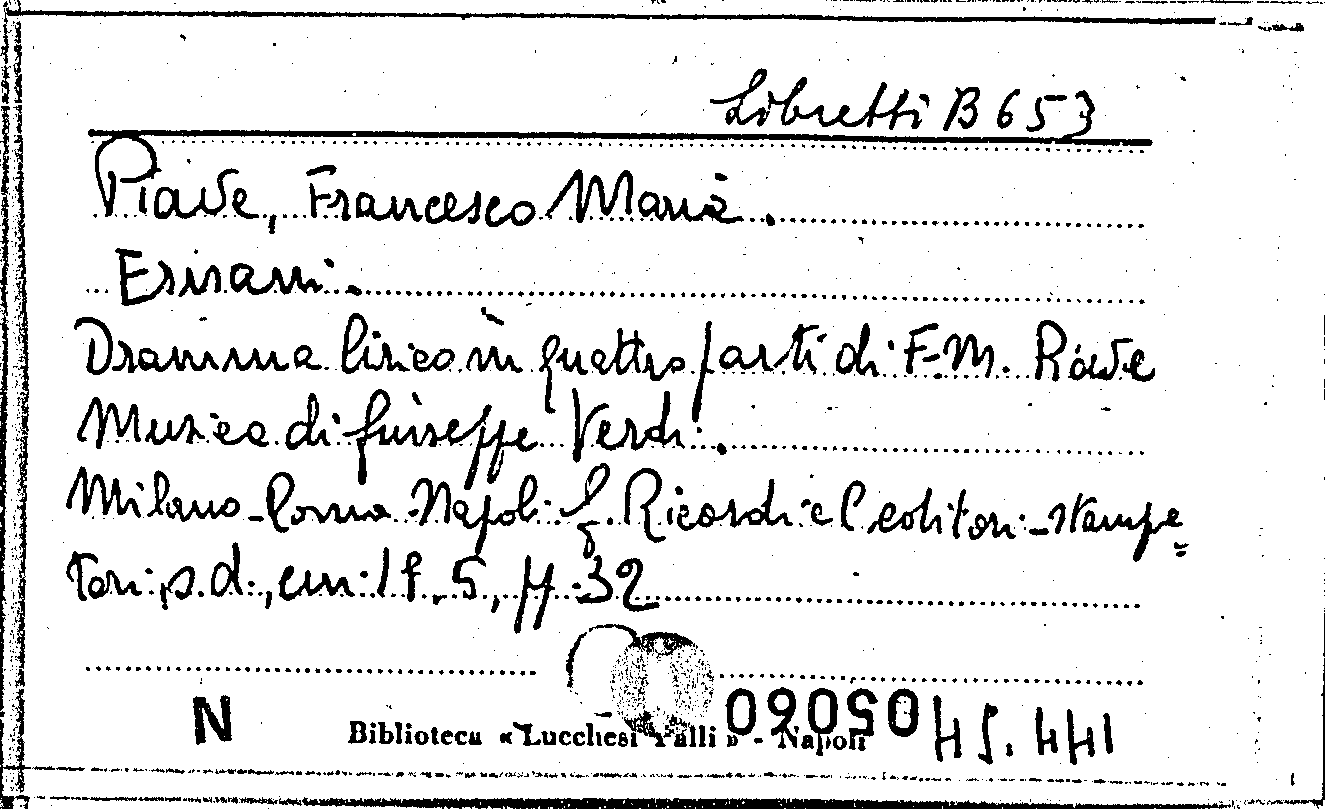 Libretti B 653
Piave, Francesco Maria.
Ernani.
Dramma lirico in quattro parti di F.M. Piave
Musica di Giuseppe Verdi.
Milano-Roma-Napoli G. Ricordi e C editori-stampa=
tori, s.d., cm. 1f.5, pp. 32
N Biblioteca « Lucchesi Palli » - Napoli
05060
144.54